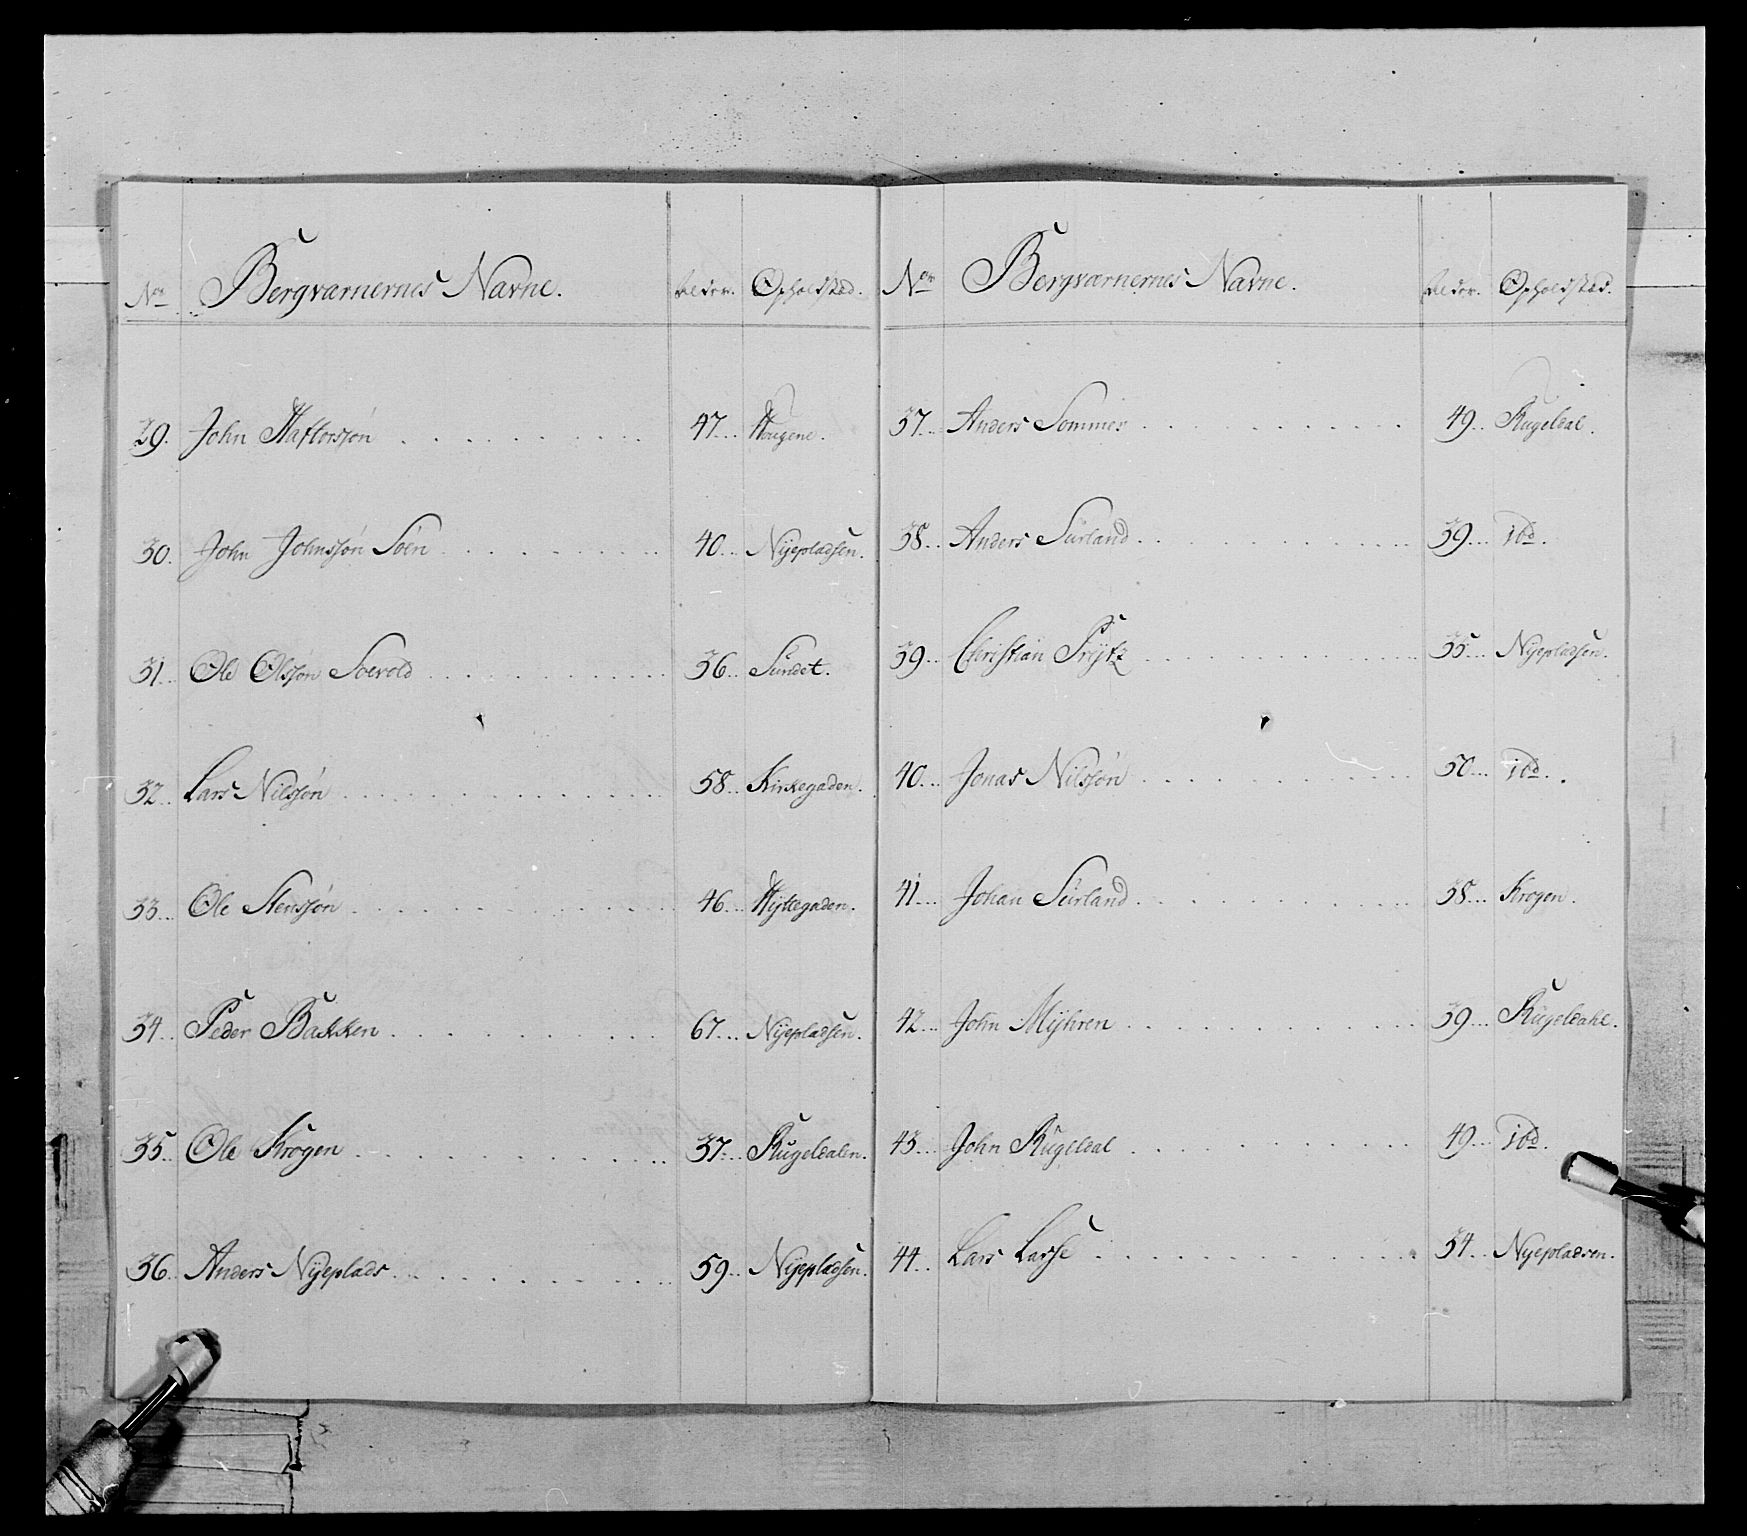 No Bergværnernes Navne. Alder. Opholdsted.
29. John Haftorsøn 47 Haugene.
30. John Johnssøn Soên 40 Nijepladsen.
31. Ole Olssøn Soevold 36 Sundet.
32. Lars Nilssøn 58 Kirkegaden.
33. Ole Stenssøn 46 Hyttegaden.
34. Peder Bakken 67 Nijepladsen.
35. Ole Krogen 37 Kugeldalen.
36. Anders Nijeplads 59 Nijepladsen.
No Bergværnernes Navne. Alder. Opholdsted.
37. Anders Sommer 49 Kugeldal.
38. Anders Surland 39 ibd.
39. Christian Prijtz 35 Nijepladsen.
40. Jonas Nilssøn 50 ibd.
41. Johan Surland 38 Krogen.
42. John Mijhren 39 Kugeldahl.
43. John Kugeldal 49 ibd.
44. Lars Lasse 34 Nyepladsen.